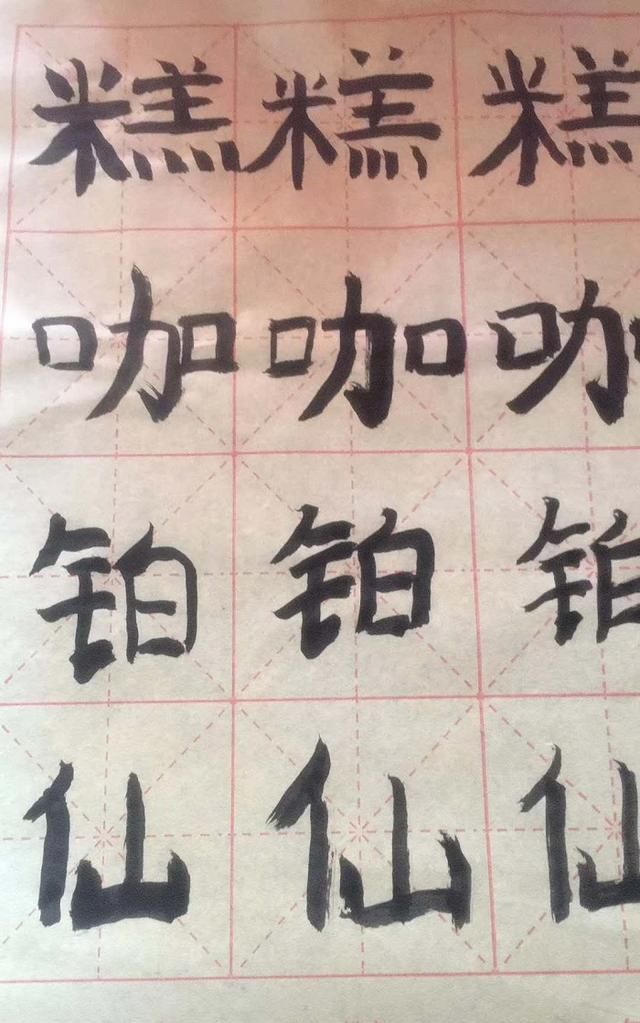 糕糕糕
咖咖咖
铂铂铂
仙仙仙